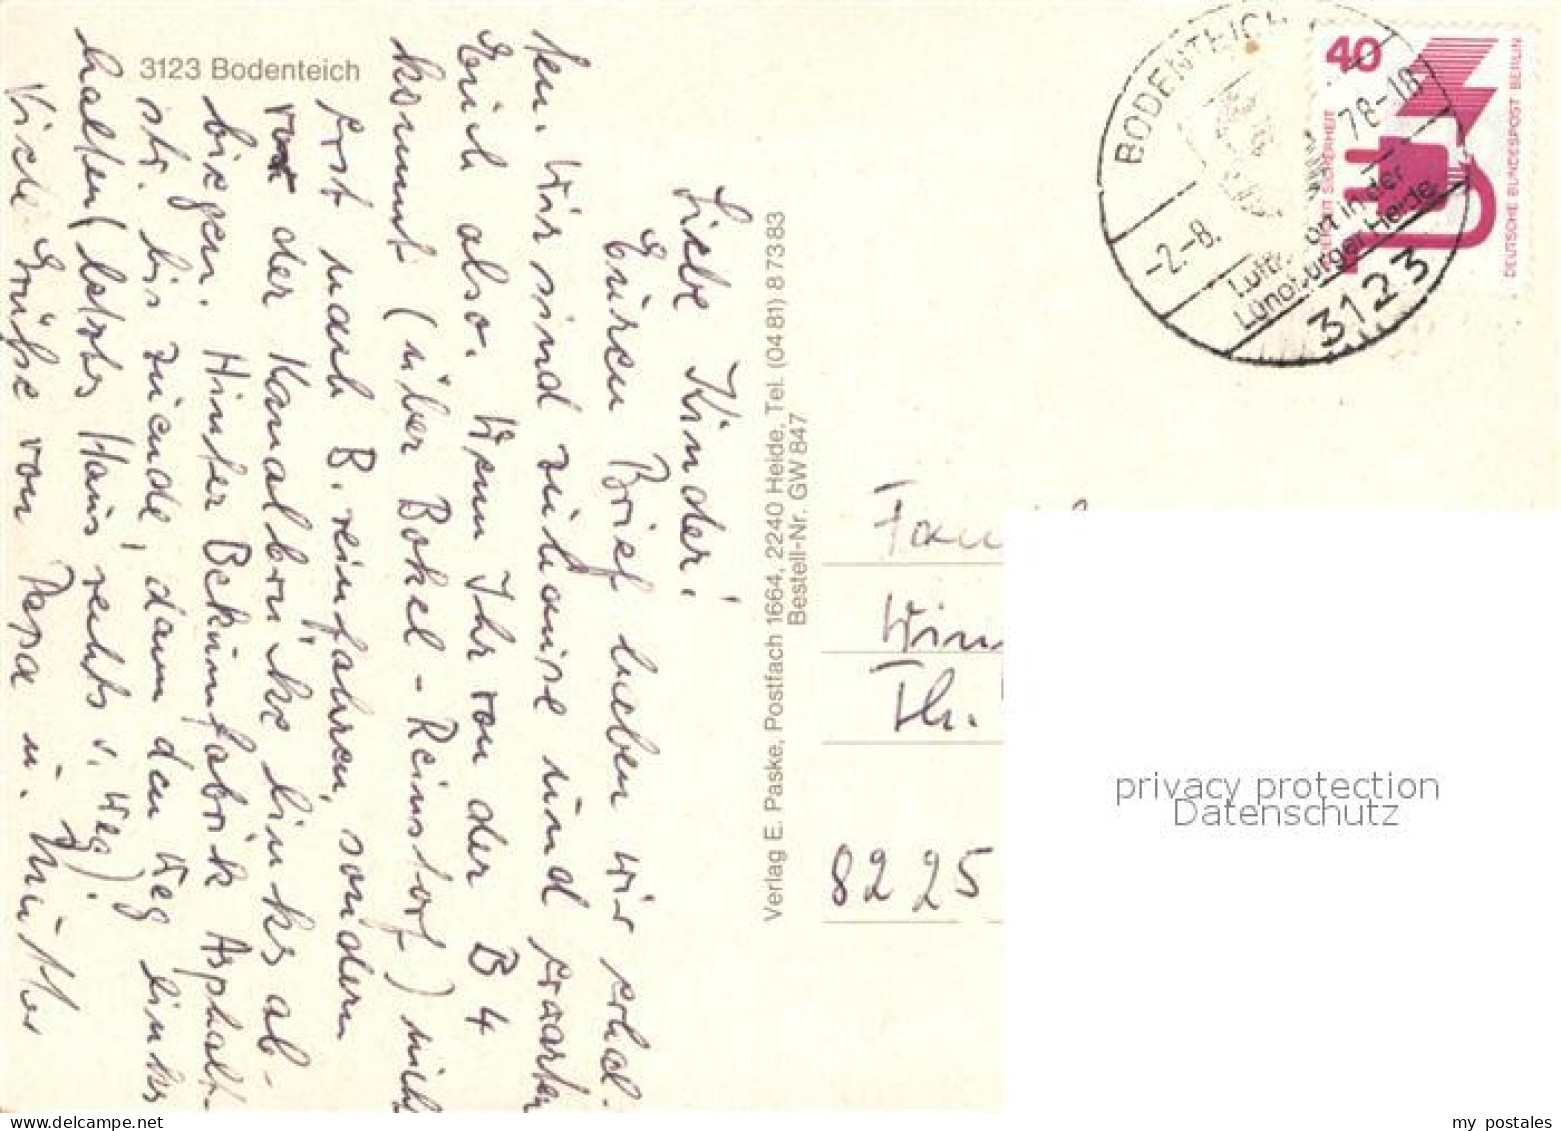 3123 Bodenteich
Liebe Kinder!
Euren Brief haben wir erhal-
ten. Wir sind zuhause und erwarten
Euch also. Wenn Ihr von der B 4
kommt (über Bokel-Reinstorf) nicht
erst nach B. reinfahren, sondern
vor der Kanalbrücke links ab-
biegen. Hinter Betonfabrik Asphalt-
str. bis zuende, dann den Weg links
halten (letztes Haus rechts v. Weg)
Viele Grüße von Papa u. Mutter
Verlag E. Paske, Postfach 1664, 2240 Heide, Tel. (04 81) 8 73 83
Bestell-Nr. GW 847
BODENTEICH
-2.-8. 78-18
Lüneburger Heide
3123
40
DEUTSCHE BUNDESPOST BERLIN
Th.
8225
privacy protection
Datenschutz
my postales